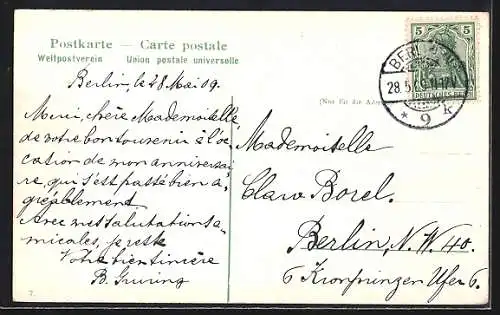 Postkarte — Carte postale
Weltpostverein Union postale universelle
Berlin, le 28 Mai 09.
Merci, chère Mademoiselle
de votre bon souvenir à l'oc
cation de mon anniversai
re, qui s'est passé bien a-
gréablement
Avec mes salutations a-
micales, je reste
Votre bien sincère
B.
7.
(Nur für die Adre
5 5
DEUTSCHES REICH
BERLIN
28.5.09
* 9 k
Mademoiselle
Clara Borel.
Berlin, N. W 40.
6 Kronprinzen Ufer 6.